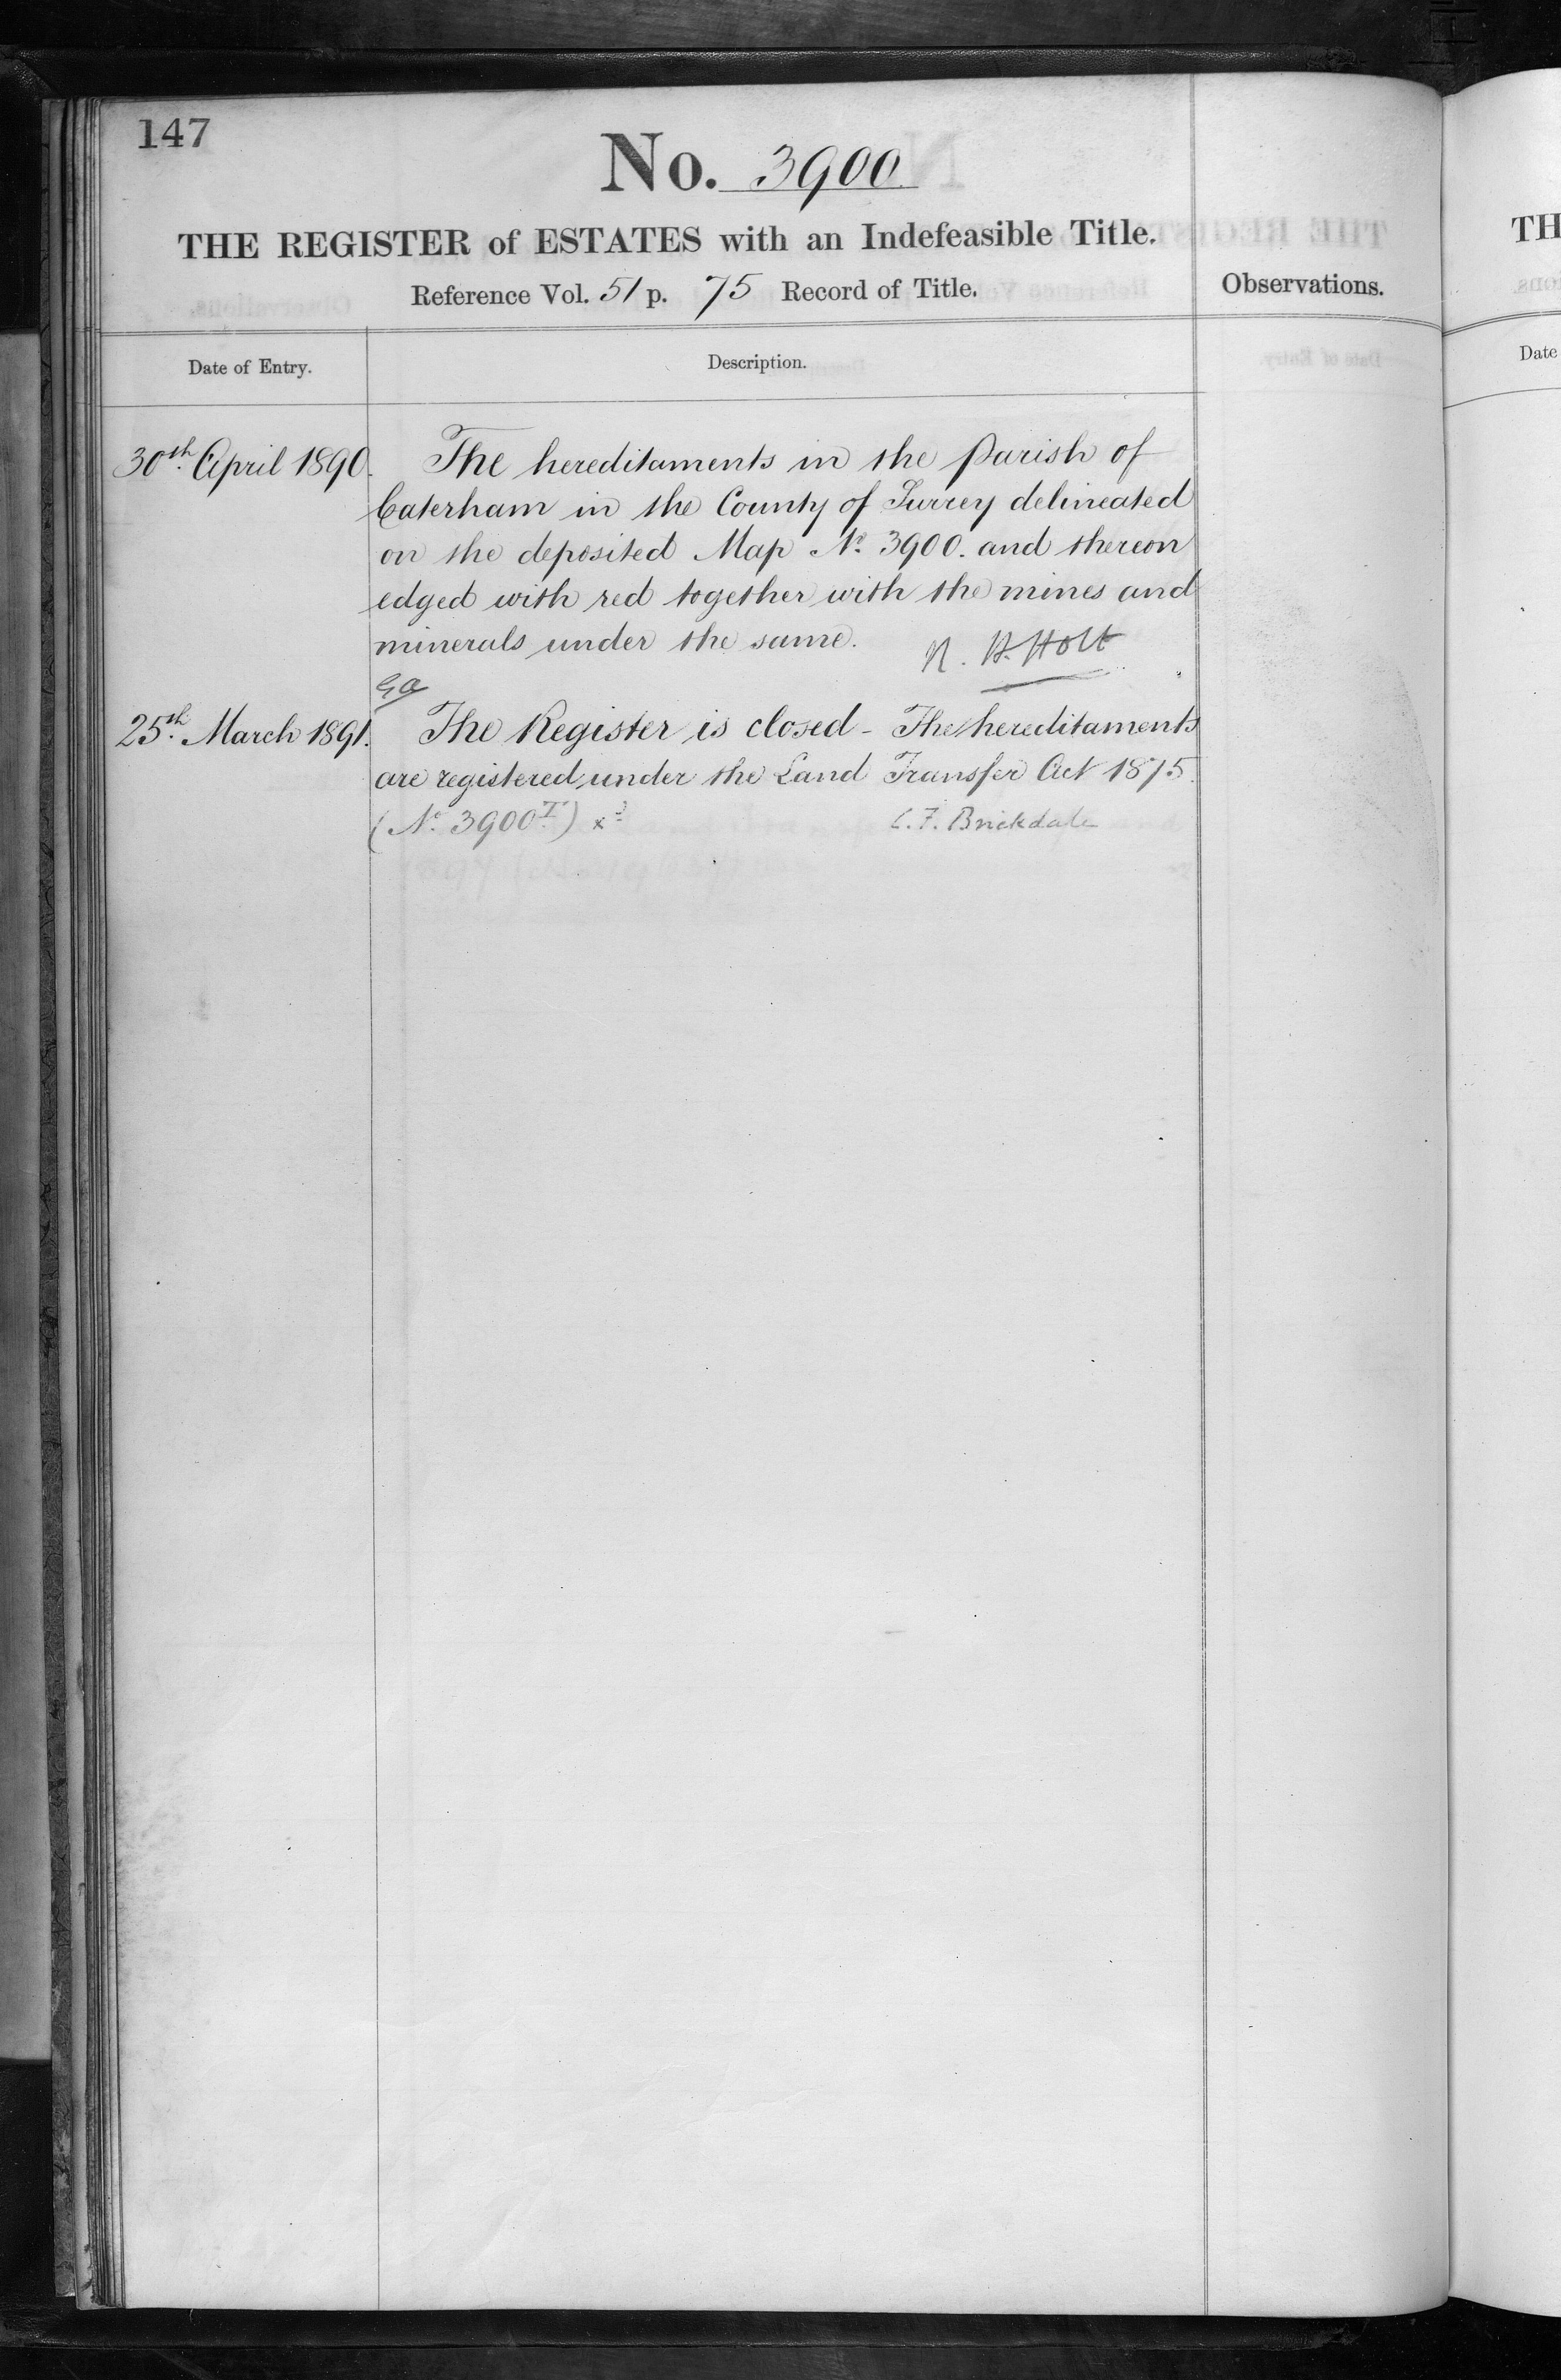 147
No. 3900
THE REGISTER of ESTATES with an Indefeasible Title.
Reference Vol. 51 p. 75 Record of Title.
Observations.
Date of Entry.
Description.
30th April 1890.
The hereditaments in the Parish of
Caterham in the County of Surrey delineated
on the deposited Map No. 3900. and thereon
edged with red together with the mines and
minerals under the same.
Holt
25th March 1891.
The Register is closed - The hereditaments
are registered under the Land Transfer Act 1875.
(No. 3900
C. F. Brickdale
TH
Date